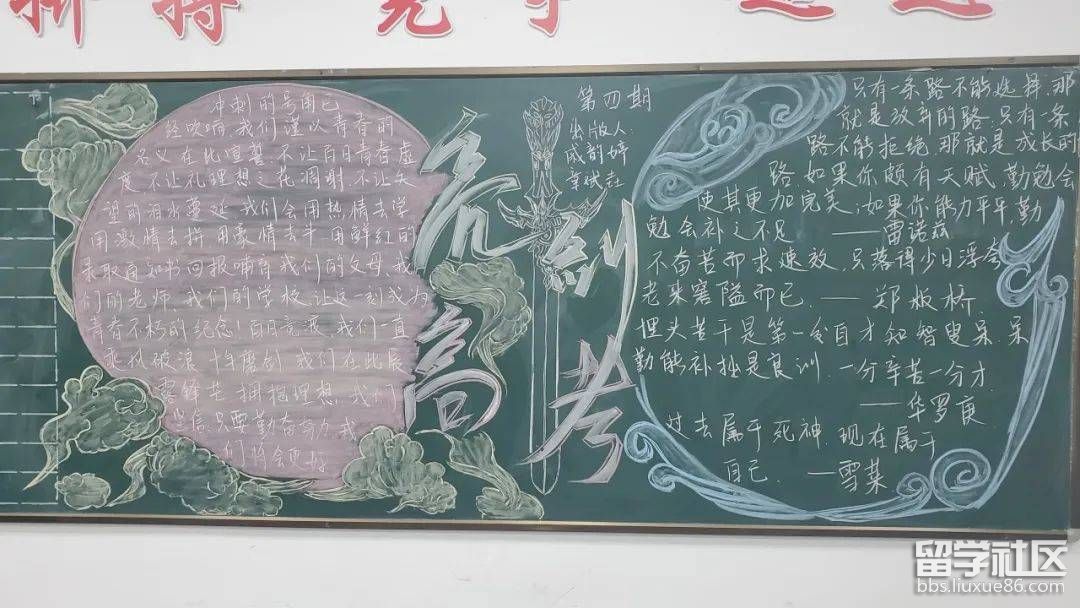 拼搏 竞争
冲刺的号角已
经吹响,我们谨以青春的
名义在此宣誓,不让百日青春虚
度,不让孔理想之花凋谢,不让失
望的泪水蔓延,我们会用热情去学
用激情去拼,用豪情去斗,用鲜红的
录取通知书回报哺育我们的父母、我
们的老师、我们的学校,让这一刻成为
青春不朽的纪念!百日竞渡,我们一直
乘风破浪,十年磨剑,我们在此辰
露锋芒,拥抱理想,我们
坚信,只要勤奋努力,我
们将会更好
亮剑
高考
第四期
出版人:
成韵婷
只有一条路不能选择,那
就是放弃的路,只有一条
路不能拒绝,那就是成长的
路,如果你颇有天赋,勤勉会
使其更加完美;如果你能力平平,勤
勉会补之不足 ——雷诺兹
不奋苦而求速效,只落得少日浮夸
老来窘隘而已. ——郑板桥
埋头苦干是第一,发白才知智叟呆.
勤能补拙是良训,一分辛苦一分才.
——华罗庚
过去属于死神,现在属于
自己. ——雪莱
留学社区
bbs.liuxue86.com